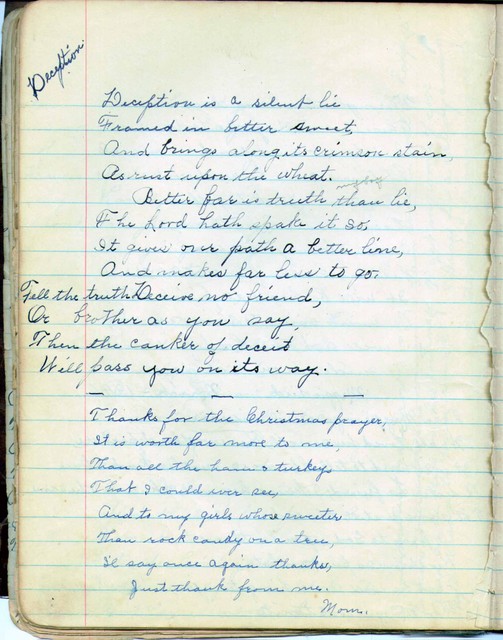 Deception
Deception is a silent lie
Framed in bitter sweet,
And brings along its crimson stain,
As rust upon the wheat.
Better far is truth than lie,
The Lord hath spake it so,
It gives our path a better line,
And makes far less to go.
Tell the truth Deceive no friend,
Or brother as you say,
Then the canker of deceit
Will pass you on its way.
Thanks for the Christmas prayer,
It is worth far more to me,
Than all the ham & turkeys
That I could ever see,
And to my girls whose sweeter
Than rock candy on a tree,
I'l say once again thanks,
Just thank from me.
Mom.